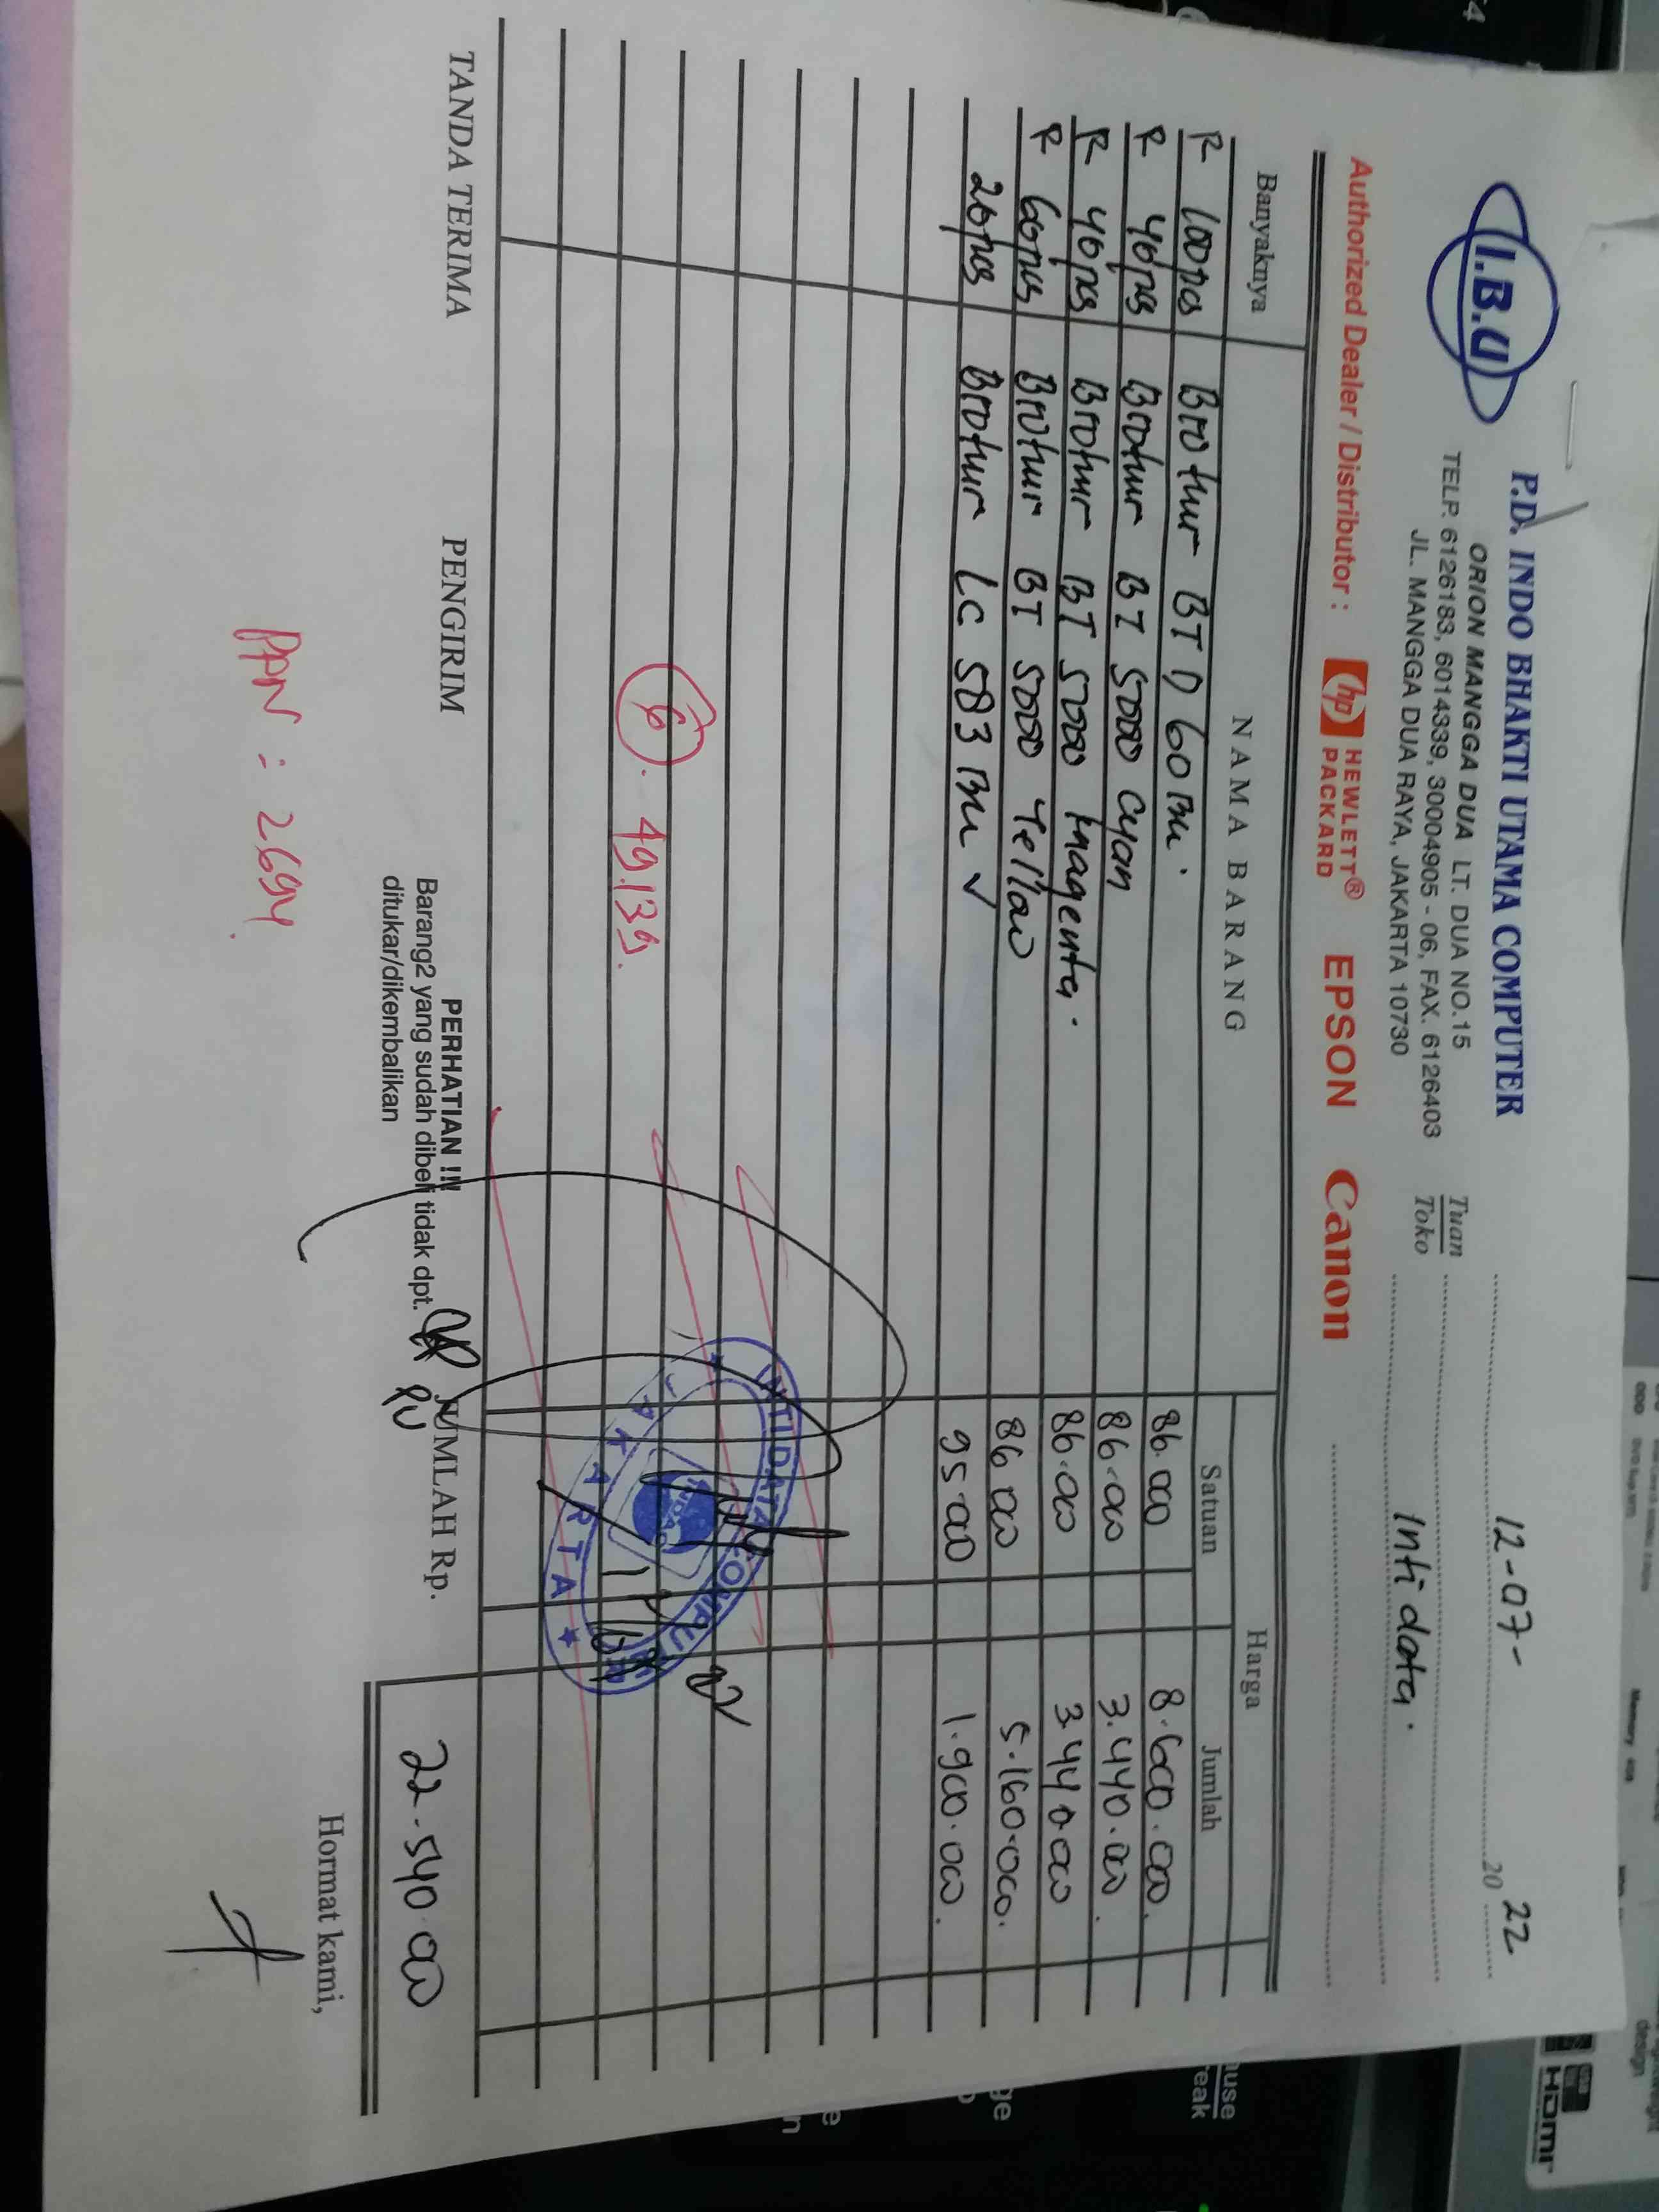 I.B.U
P.D. INDO BHAKTI UTAMA COMPUTER
ORION MANGGA DUA LT. DUA NO.15
TELP. 6126183, 6014339, 30004905 - 06, FAX. 6126403
JL. MANGGA DUA RAYA, JAKARTA 10730
12-07- 20 22
Tuan
Toko
Inti data.
Authorized Dealer / Distributor : hp HEWLETT® PACKARD EPSON Canon
Banyaknya NAMA BARANG Harga
Satuan Jumlah
R 100pcs Brother BT D 60 BK. 86.000 8.600.000.
R 40pcs Brother BT 5000 Cyan 86.000 3.440.000.
R 40pcs Brother BT 5000 Magenta. 86.000 3.440.000
R 60pcs Brother BT 5000 Yellow 86.000 5.160.000.
20pcs Brother LC 583 BK ✓ 95.000 1.900.000.
6. 49.139.
JUMLAH Rp. 22.540.000
TANDA TERIMA PENGIRIM
PERHATIAN !!!
Barang2 yang sudah dibeli tidak dpt.
ditukar/dikembalikan
Hormat kami,
PPN : 2694
HDMI
design